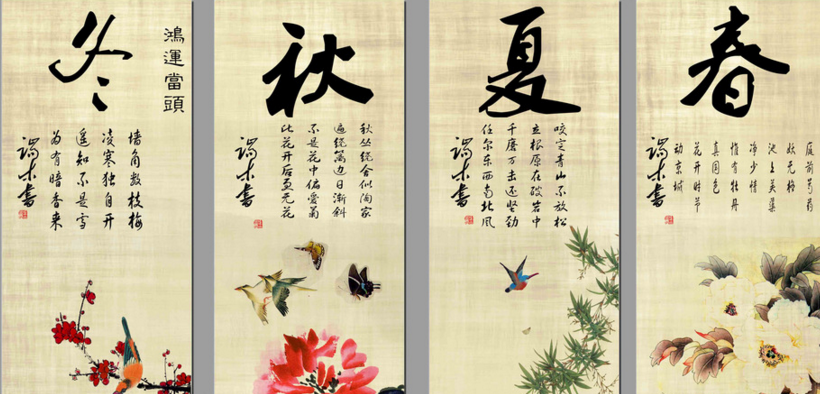 春
庭前芍药
妖无格
池上芙蕖
净少情
惟有牡丹
真国色
花开时节
动京城
端木書
夏
咬定青山不放松
立根原在破岩中
千磨万击还坚劲
任尔东西南北风
端木書
秋
秋丛绕舍似陶家
遍绕篱边日渐斜
不是花中偏爱菊
此花开后更无花
端木書
鴻運當頭
冬
墙角数枝梅
凌寒独自开
遥知不是雪
为有暗香来
端木書